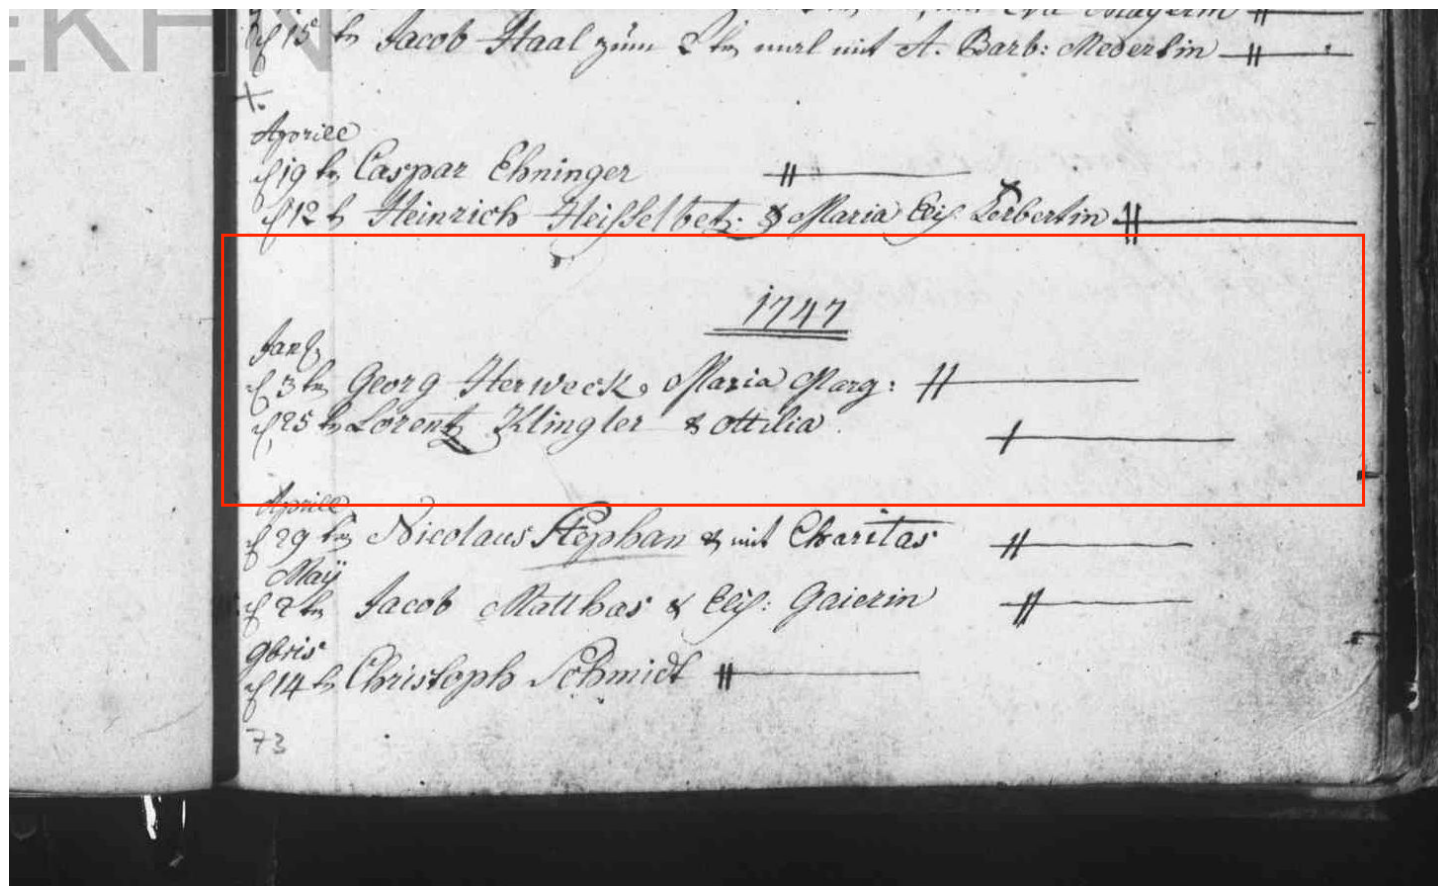 EKHN
15 t. Jacob Staal zum 2 t. mal mit A. Barb: Mederlin
Aprill
19 t. Caspar Ehninger
12 t. Heinrich Heisselbetz: & Maria Elis. Lerbertin
1747
Jan
3 t. Georg Herweck, Maria Marg:
25 t. Lorentz Klingler & Ottilia.
Aprill
29 t. Nicolaus Stephan & mit Charitas
Maÿ
2 t. Jacob Matthas & Elis: Gaierin
9bris
14 t. Christoph Schmidt
73